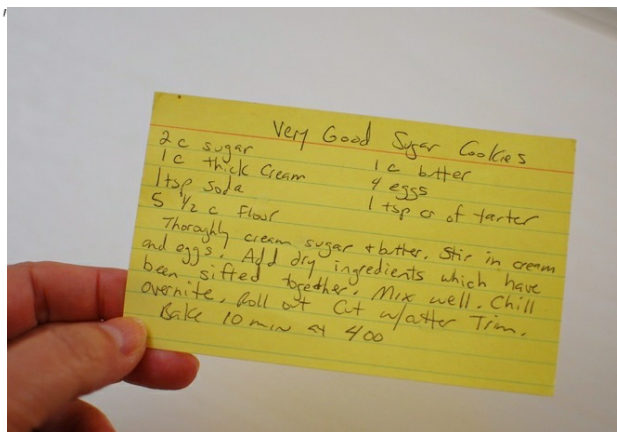 Very Good Sugar Cookies
2 c sugar 1 c butter
1 c thick cream 4 eggs
1 tsp soda 1 tsp cr of tarter
5 1/2 c flour
Thoroghly cream sugar + butter. Stir in cream
and eggs. Add dry ingredients which have
been sifted together. Mix well. Chill
overnite. Roll out Cut w/cutter Trim.
Bake 10 min at 400